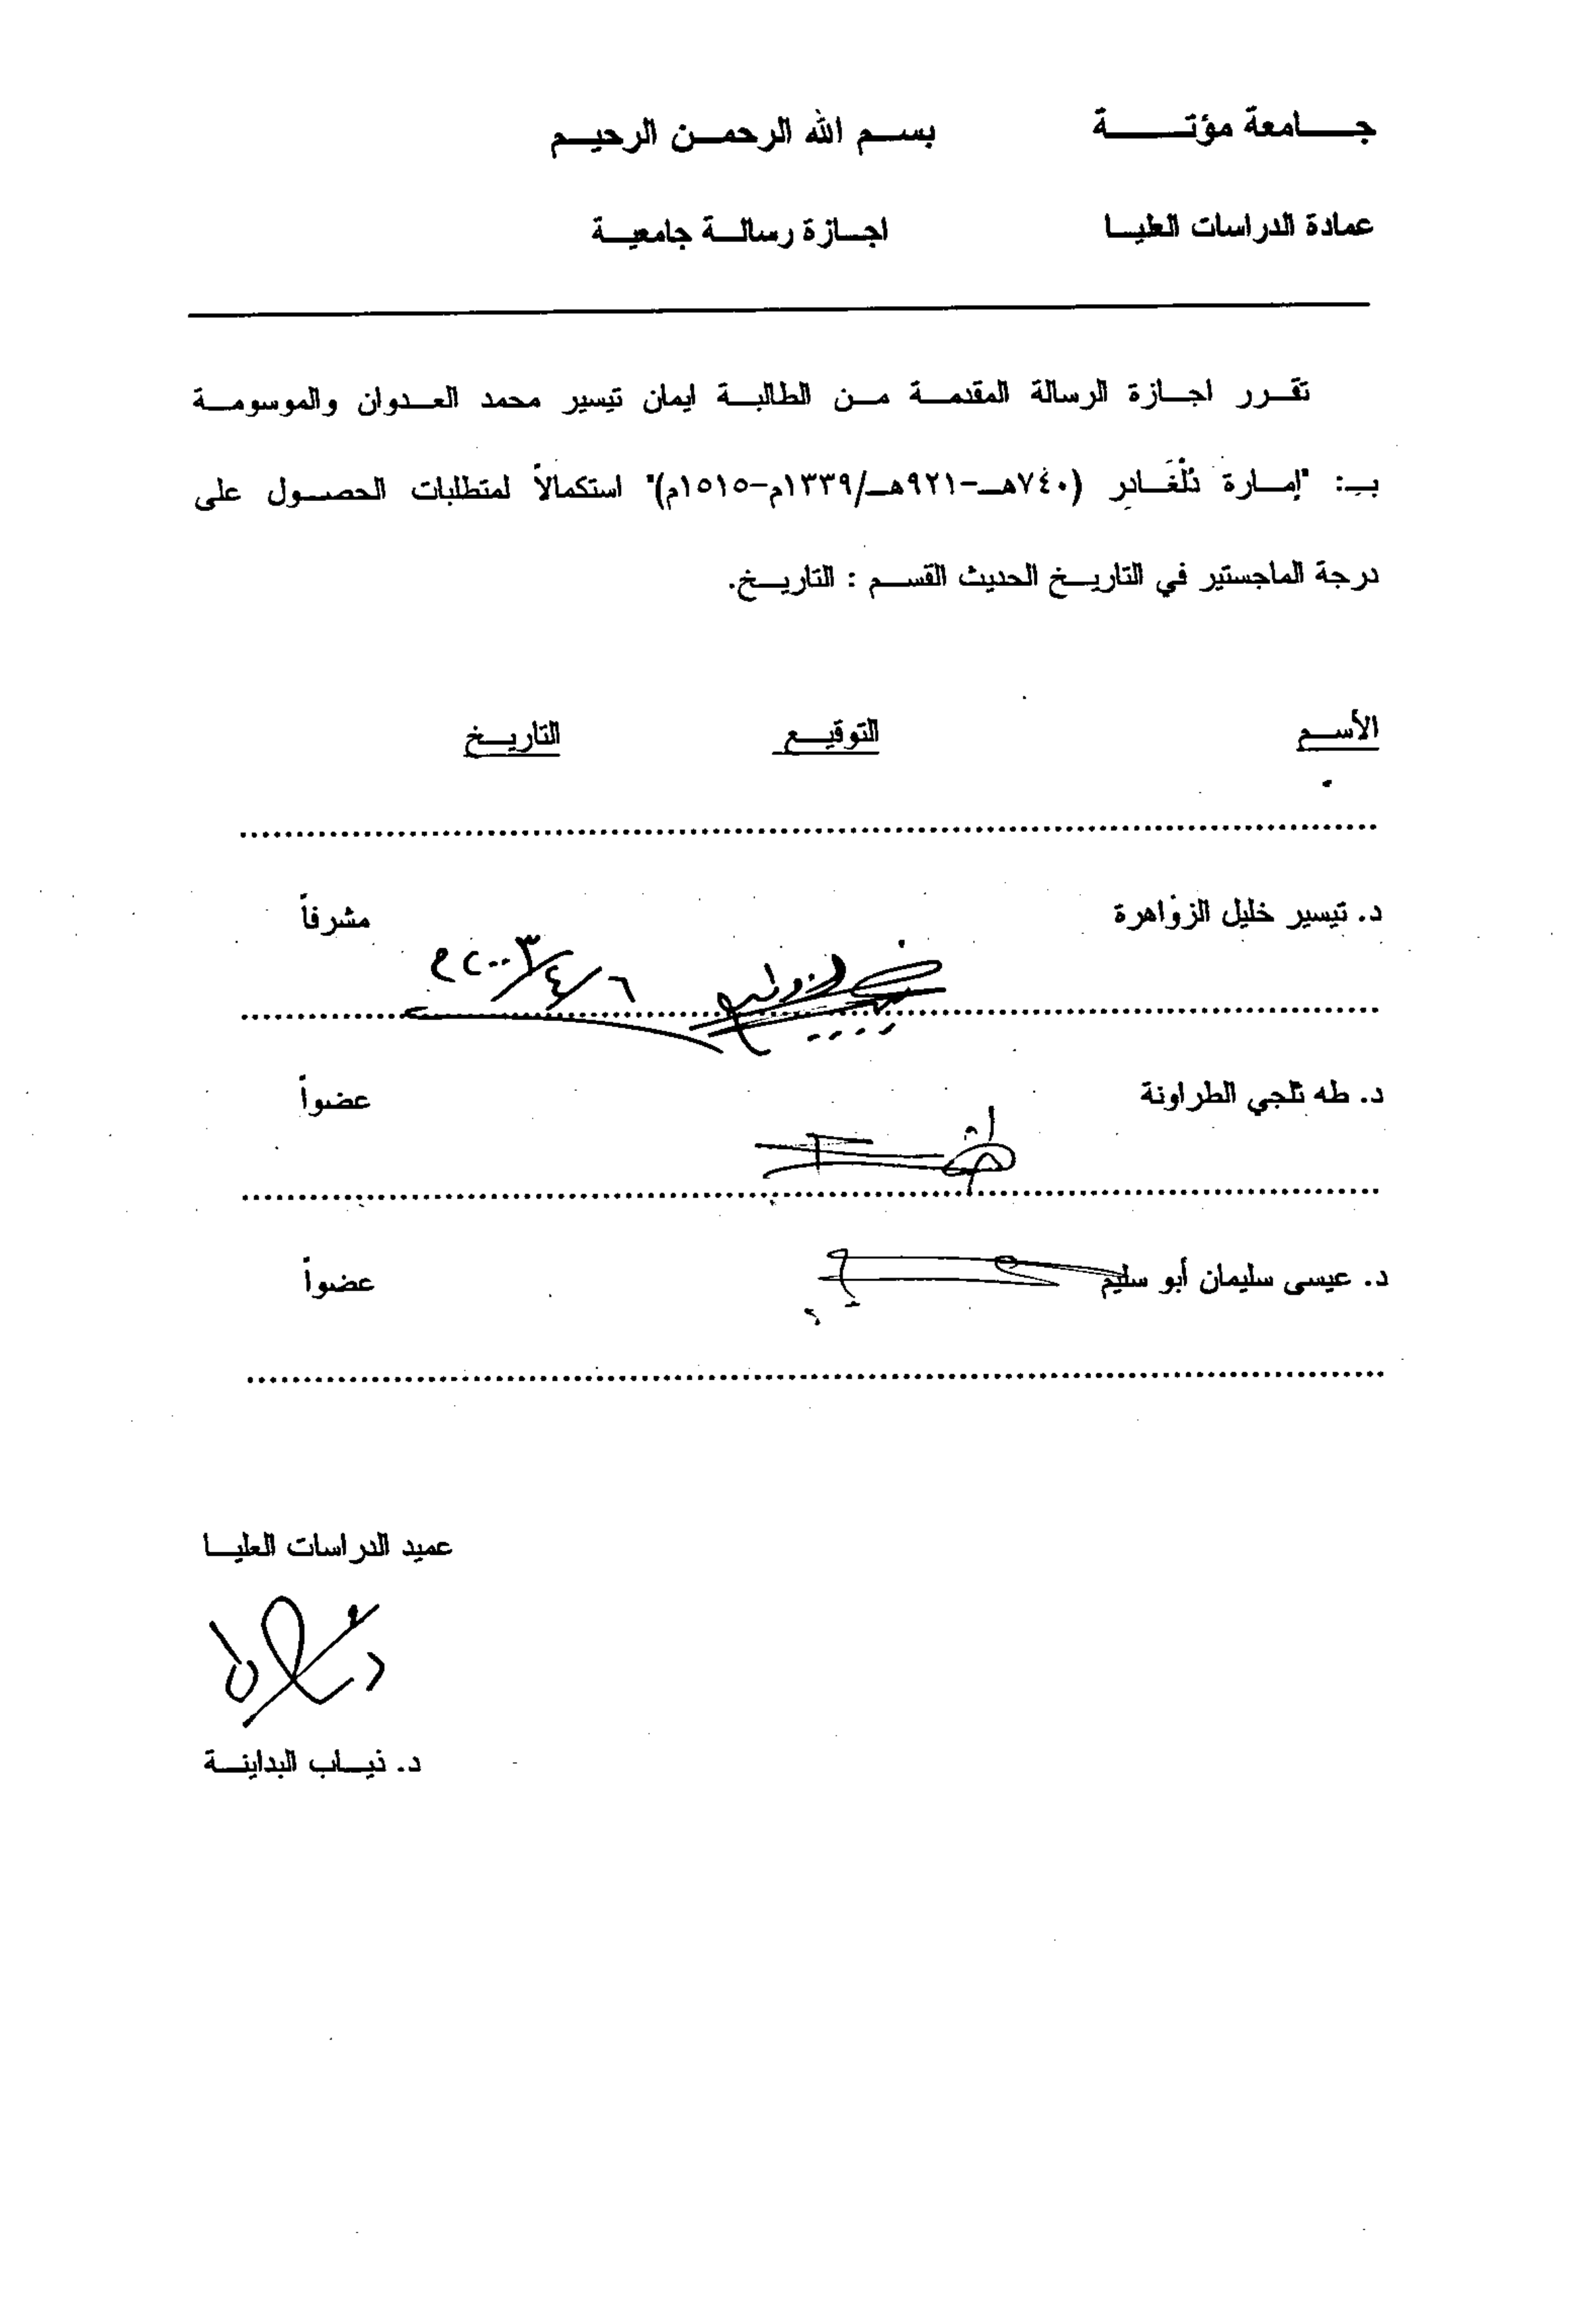 جامعة مؤتة
بسم الله الرحمن الرحيم
عمادة الدراسات العليا
اجازة رسالة جامعية
تقرر اجازة الرسالة المقدمة من الطالبة ايمان تيسير محمد العدوان والموسومة
بـ: "إمارة دُلْغَادِر (٧٤٠هـ-٩٢١هـ/١٣٣٩م-١٥١٥م)" استكمالاً لمتطلبات الحصول على
درجة الماجستير في التاريخ الحديث القسم : التاريخ.
الأسم التوقيع التاريخ
د. تيسير خليل الزواهرة مشرفاً
٦/٤/٢٠٠٣م
د. طه ثلجي الطراونة عضواً
د. عيسى سليمان أبو سليم عضواً
عميد الدراسات العليا
د. ذياب البداينة